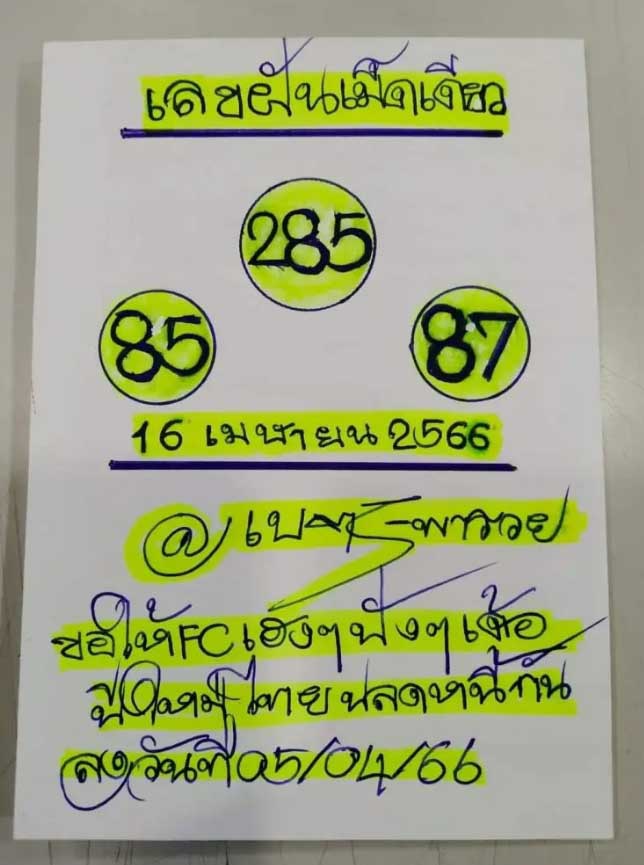 เลขฝันเม็ดเดียว
285
85
87
16 เมษายน 2566
@ เบ พารวย
ขอให้FCเฮงๆปังๆเด้อ
ปีใหม่ไทยปลดหนี้กัน
ลงวันที่05/04/66